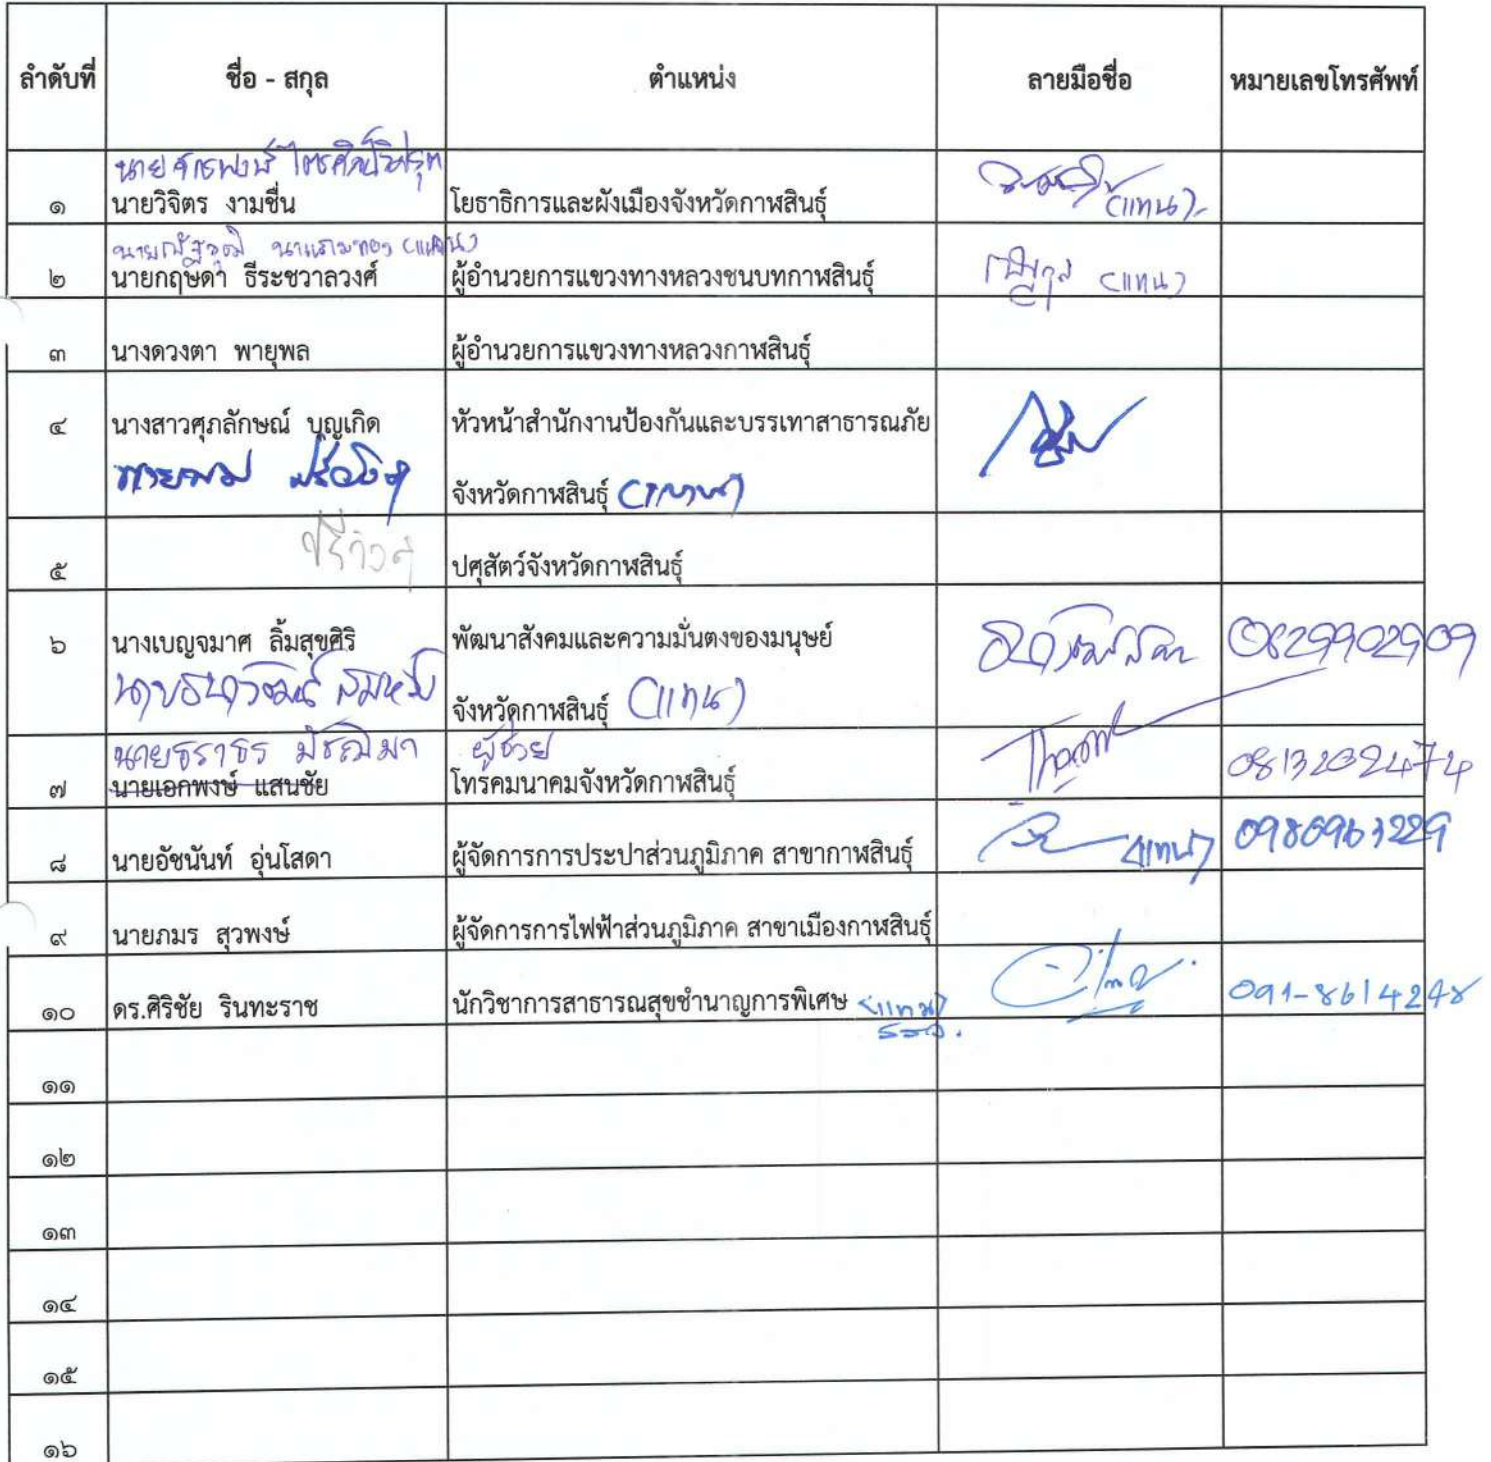 ลำดับที่ ชื่อ - สกุล ตำแหน่ง ลายมือชื่อ หมายเลขโทรศัพท์
นาย
๑ นายวิจิตร งามชื่น โยธาธิการและผังเมืองจังหวัดกาฬสินธุ์ (แทน)
(แทน)
๒ นายกฤษดา ธีระชวาลวงศ์ ผู้อำนวยการแขวงทางหลวงชนบทกาฬสินธุ์ (แทน)
๓ นางดวงตา พายุพล ผู้อำนวยการแขวงทางหลวงกาฬสินธุ์
๔ นางสาวศุภลักษณ์ บุญเกิด หัวหน้าสำนักงานป้องกันและบรรเทาสาธารณภัย
จังหวัดกาฬสินธุ์ (แทน)
๕ ปศุสัตว์จังหวัดกาฬสินธุ์
๖ นางเบญจมาศ ลิ้มสุขศิริ พัฒนาสังคมและความมั่นตงของมนุษย์ 0829902909
จังหวัดกาฬสินธุ์ (แทน)
นายธราธร มัธณิมา ผู้ช่วย
๗ นายเอกพงษ์ แสนชัย โทรคมนาคมจังหวัดกาฬสินธุ์ 0813202474
๘ นายอัชนันท์ อุ่นโสดา ผู้จัดการการประปาส่วนภูมิภาค สาขากาฬสินธุ์ (แทน) 0986963229
๙ นายภมร สุวพงษ์ ผู้จัดการการไฟฟ้าส่วนภูมิภาค สาขาเมืองกาฬสินธุ์
๑๐ ดร.ศิริชัย รินทะราช นักวิชาการสาธารณสุขชำนาญการพิเศษ (แทน) 091-8614248
๑๑
๑๒
๑๓
๑๔
๑๕
๑๖